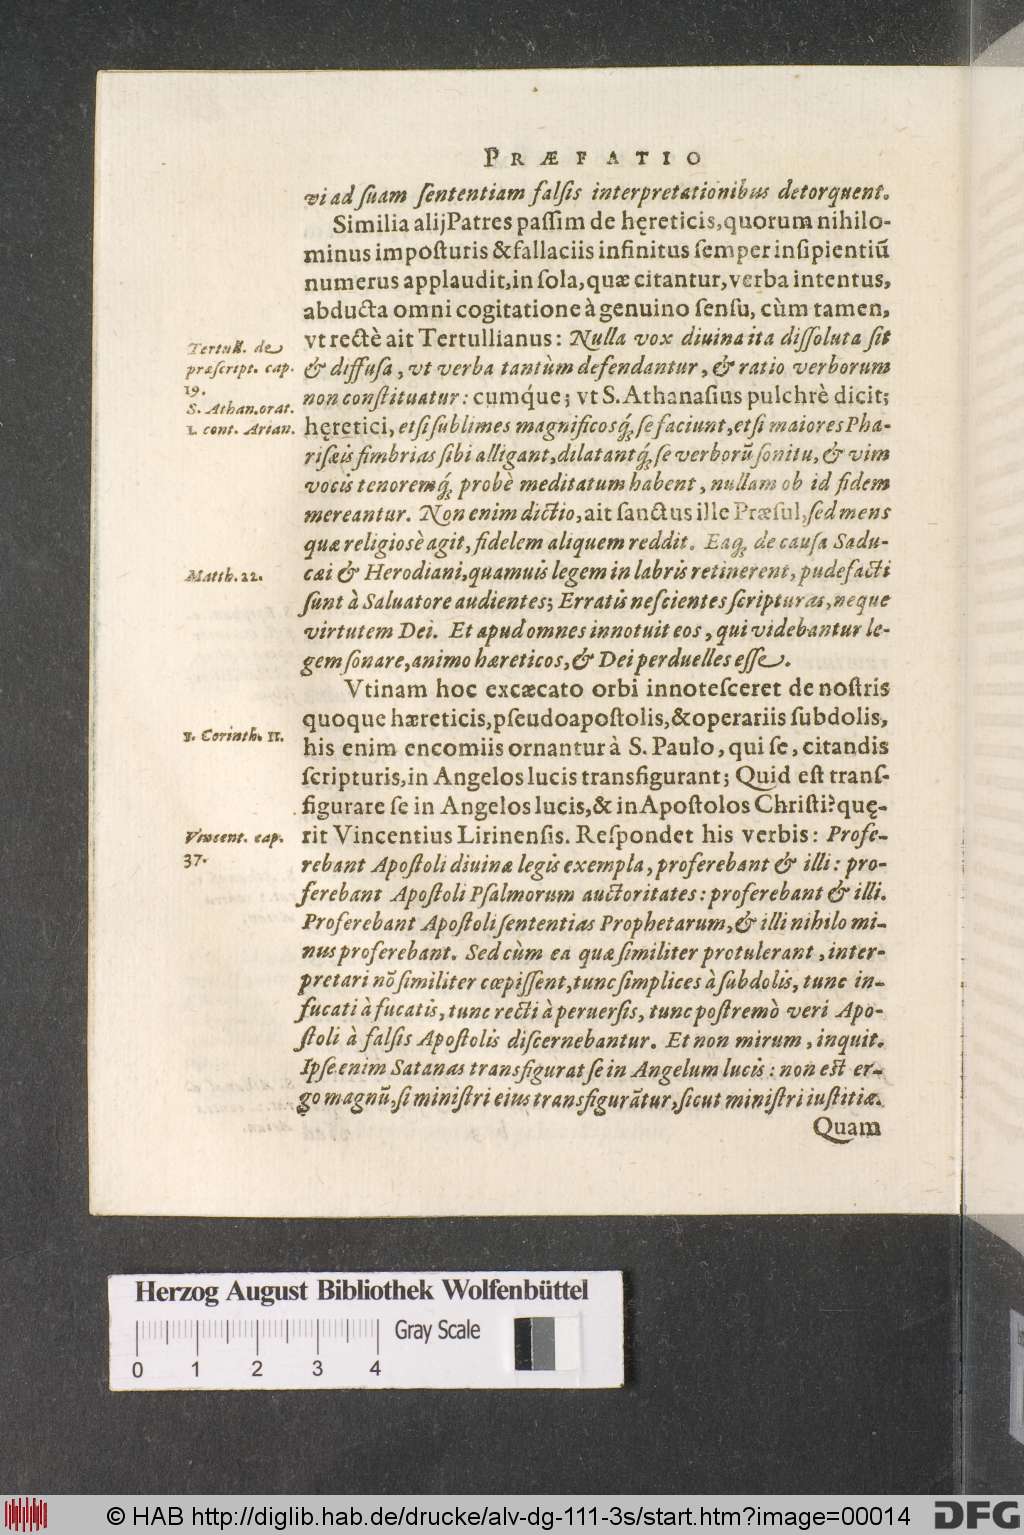 PRÆFATIO
vi ad ſuam ſententiam falſis interpretationibus detorquent.
Similia alij Patres paſſim de hęreticis, quorum nihilo-
minus impoſturis & fallaciis infinitus ſemper inſipientiũ
numerus applaudit, in ſola, quæ citantur, verba intentus,
abducta omni cogitatione à genuino ſenſu, cùm tamen,
vt rectè ait Tertullianus: Nulla vox diuina ita diſſoluta ſit
& diffuſa, vt verba tantùm defendantur, & ratio verborum
non conſtituatur: cumq́ue; vt S. Athanaſius pulchrè dicit;
hęretici, etſi ſublimes magnificosq́; ſe faciunt, etſi maiores Pha-
riſæis fimbrias ſibi alligant, dilatantq́; ſe verborũ ſonitu, & vim
vocis tenoremq́; probè meditatum habent, nullam ob id fidem
mereantur. Non enim dictio, ait ſanctus ille Præſul, ſed mens
quæ religiosè agit, fidelem aliquem reddit. Eaq́; de cauſa Sadu-
cæi & Herodiani, quamuis legem in labris retinerent, pudefacti
ſunt à Saluatore audientes; Erratis neſcientes ſcripturas, neque
virtutem Dei. Et apud omnes innotuit eos, qui videbantur le-
gem ſonare, animo hæreticos, & Dei perduelles eſſe.
Vtinam hoc excæcato orbi innoteſceret de noſtris
quoque hæreticis, pſeudoapoſtolis, & operariis ſubdolis,
his enim encomiis ornantur à S. Paulo, qui ſe, citandis
ſcripturis, in Angelos lucis transfigurant; Quid eſt tranſ-
figurare ſe in Angelos lucis, & in Apoſtolos Chriſti? quę-
rit Vincentius Lirinenſis. Reſpondet his verbis: Profe-
rebant Apoſtoli diuinæ legis exempla, proferebant & illi: pro-
ferebant Apoſtoli Pſalmorum auctoritates: proferebant & illi.
Proferebant Apoſtoli ſententias Prophetarum, & illi nihilo mi-
nus proferebant. Sed cùm ea quæ ſimiliter protulerant, inter-
pretari nõ ſimiliter cœpiſſent, tunc ſimplices à ſubdolis, tunc in-
fucati à fucatis, tunc recti à peruerſis, tunc poſtremò veri Apo-
ſtoli à falſis Apoſtolis diſcernebantur. Et non mirum, inquit.
Ipſe enim Satanas transfigurat ſe in Angelum lucis: non eſt er-
go magnũ, ſi miniſtri eius transfigurãtur, ſicut miniſtri iuſtitiæ.
Quam
Tertull. de
præſcript. cap.
19.
S. Athan. orat.
1. cont. Arian.
Matth. 22.
1. Corinth. 11.
Vincent. cap.
37.
Herzog August Bibliothek Wolfenbüttel
Gray Scale
0 1 2 3 4
© HAB http://diglib.hab.de/drucke/alv-dg-111-3s/start.htm?image=00014
DFG